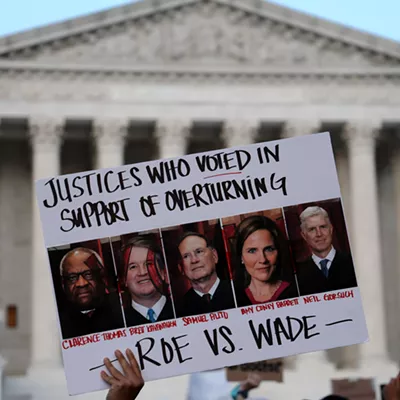 JUSTICES WHO VOTED IN
SUPPORT OF OVERTURNING
CLARENCE THOMAS BRETT KAVANAUGH SAMUEL ALITO AMY CONEY BARRETT NEIL GORSUCH
— ROE VS. WADE —